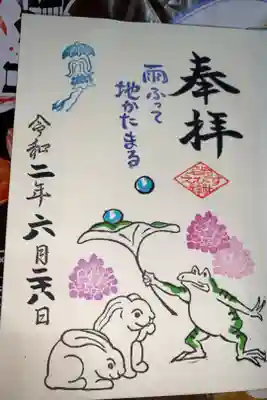 奉拝
雨ふって
地かたまる
令和二年六月二十六日